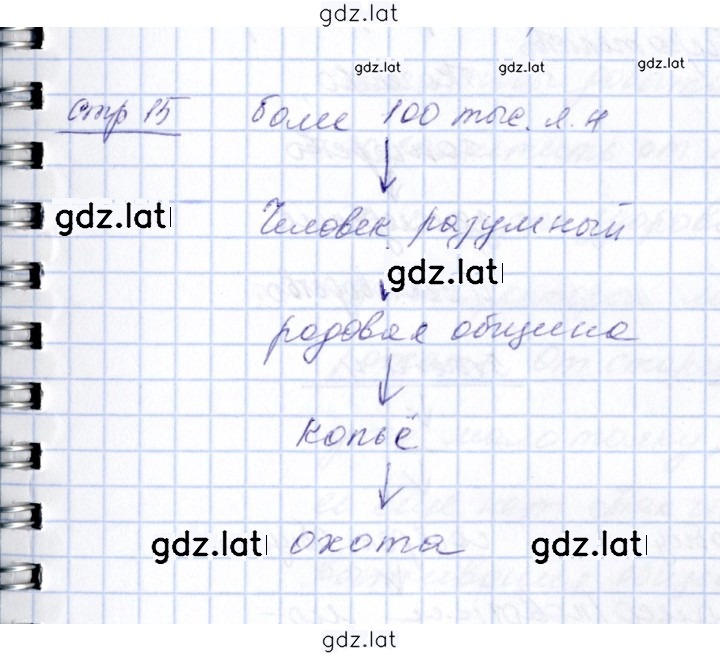 gdz.lat
gdz.lat gdz.lat gdz.lat
стр 15 более 100 тыс. л. н
gdz.lat Человек разумный
gdz.lat
родовая община
копьё
gdz.lat охота gdz.lat
gdz.lat